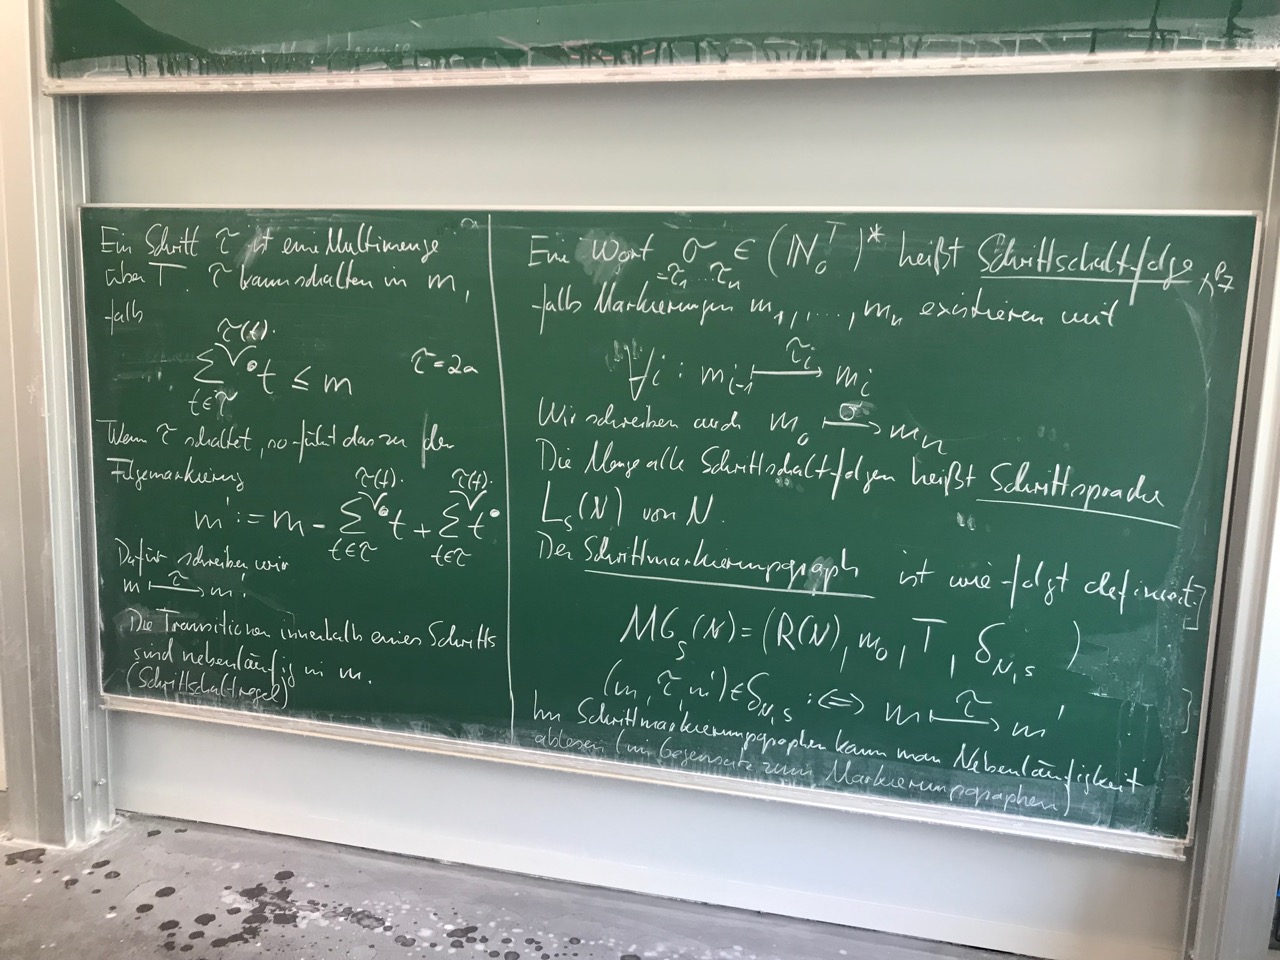 Ein Schritt τ ist eine Multimenge
über T. τ kann schalten in m,
falls
τ(t)·
∑ •t ≤ m
t∈τ
τ = 2a
Wenn τ schaltet, so führt das zu der
Folgemarkierung
τ(t)· τ(t)·
m' := m - ∑ •t + ∑ t•
t∈τ t∈τ
Dafür schreiben wir
m ⊢τ→ m'.
Die Transitionen innerhalb eines Schritts
sind nebenläufig in m.
(Schrittschaltregel)
Ein Wort σ ∈ (ℕ₀ᵀ)* heißt Schrittschaltfolge,
=τ₁...τₙ
falls Markierungen m₁,...,mₙ existieren mit
∀i : mᵢ₋₁ ⊢τᵢ→ mᵢ
Wir schreiben auch m₀ ⊢σ→ mₙ
Die Menge alle Schrittschaltfolgen heißt Schrittsprache
Lₛ(N) von N.
Der Schrittmarkierungsgraph ist wie folgt definiert:
MGₛ(N) = (R(N), m₀, T, δ_N,s )
(m, τ, m') ∈ δ_N,s :⇔ m ⊢τ→ m'
Im Schrittmarkierungsgraphen kann man Nebenläufigkeit
ablesen (im Gegensatz zum Markierungsgraphen)